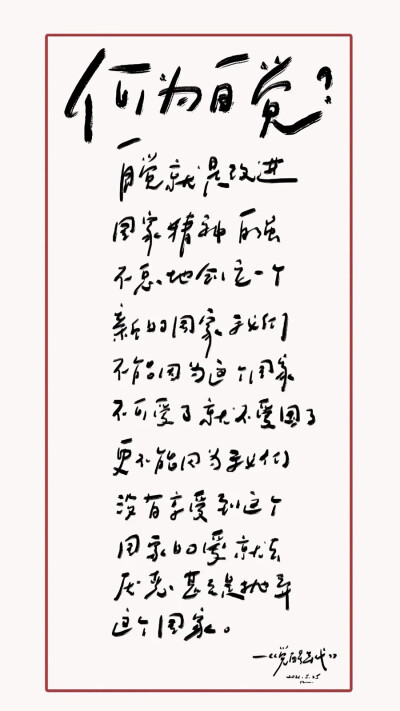 何为自觉?
自觉就是改进
国家精神自强
不息地创立一个
新的国家我们
不能因为这个国家
不可爱了就不爱国了
更不能因为我们
没有享受到这个
国家的爱就去
厌恶甚至是抛弃
这个国家。
—《觉醒年代》